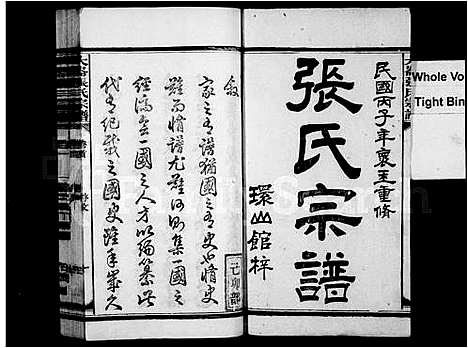 民國丙子年褒主重脩
張氏宗譜
環山館梓
Whole Vo
Tight Bin
敘
家之有譜猶國之有史也脩史
難而脩譜尤難何則集一國之
經濟合一國之人才以編纂此
代有紀載之國史雖年歲久
己卯部